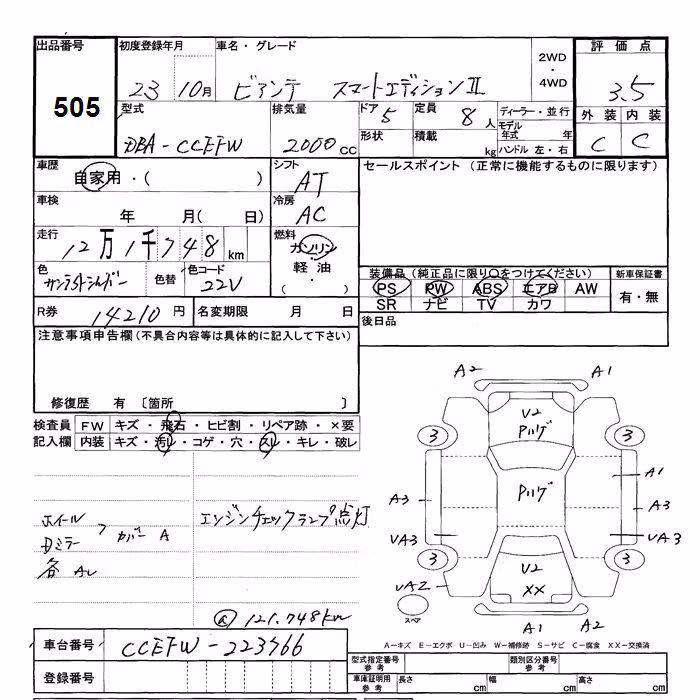 出品番号 初度登録年月 車名・グレード 2WD・4WD 評価点
505 23 10月 ビアンテ スマートエディションII 3.5
型式 排気量 ドア 5 定員 8人 ディーラー・並行 外装 内装
DBA-CCEFW 2000cc 形状 積載 kg モデル年式 年 ハンドル 左・右 C C
車歴 自家用・( ) シフト AT セールスポイント (正常に機能するものに限ります)
車検 年 月( 日) 冷房 AC
走行 12万1千748km 燃料 ガソリン・軽油・( )
色 色替 色コード 22V 装備品(純正品に限り○をつけてください) 新車保証書
PS PW ABS エアB AW 有・無
SR ナビ TV カワ
R券 14210円 名変期限 月 日 後日品
注意事項申告欄(不具合内容等は具体的に記入して下さい)
修復歴 有 〔箇所 〕
検査員 FW キズ・飛石・ヒビ割・リペア跡・×要
記入欄 内装 キズ・汚レ・コゲ・穴・スレ・キレ・破レ
ホイール
Dミラー > カバー A
各 AU
エンジンチェックランプ点灯
121.748km
A2 A1
V2
Pハゲ
3 3
Pハゲ
A1
A3 A3
UA3 UA3
3 3
V2
XX
UA2
スペア
A1 A2
A-キズ E-エクボ U-凹み W-補修跡 S-サビ C-腐食 XX-交換済
車台番号 CCEFW-223566
登録番号
型式指定番号 参考 類別区分番号 参考
車庫証明用 参考 長さ cm 幅 cm 高さ cm